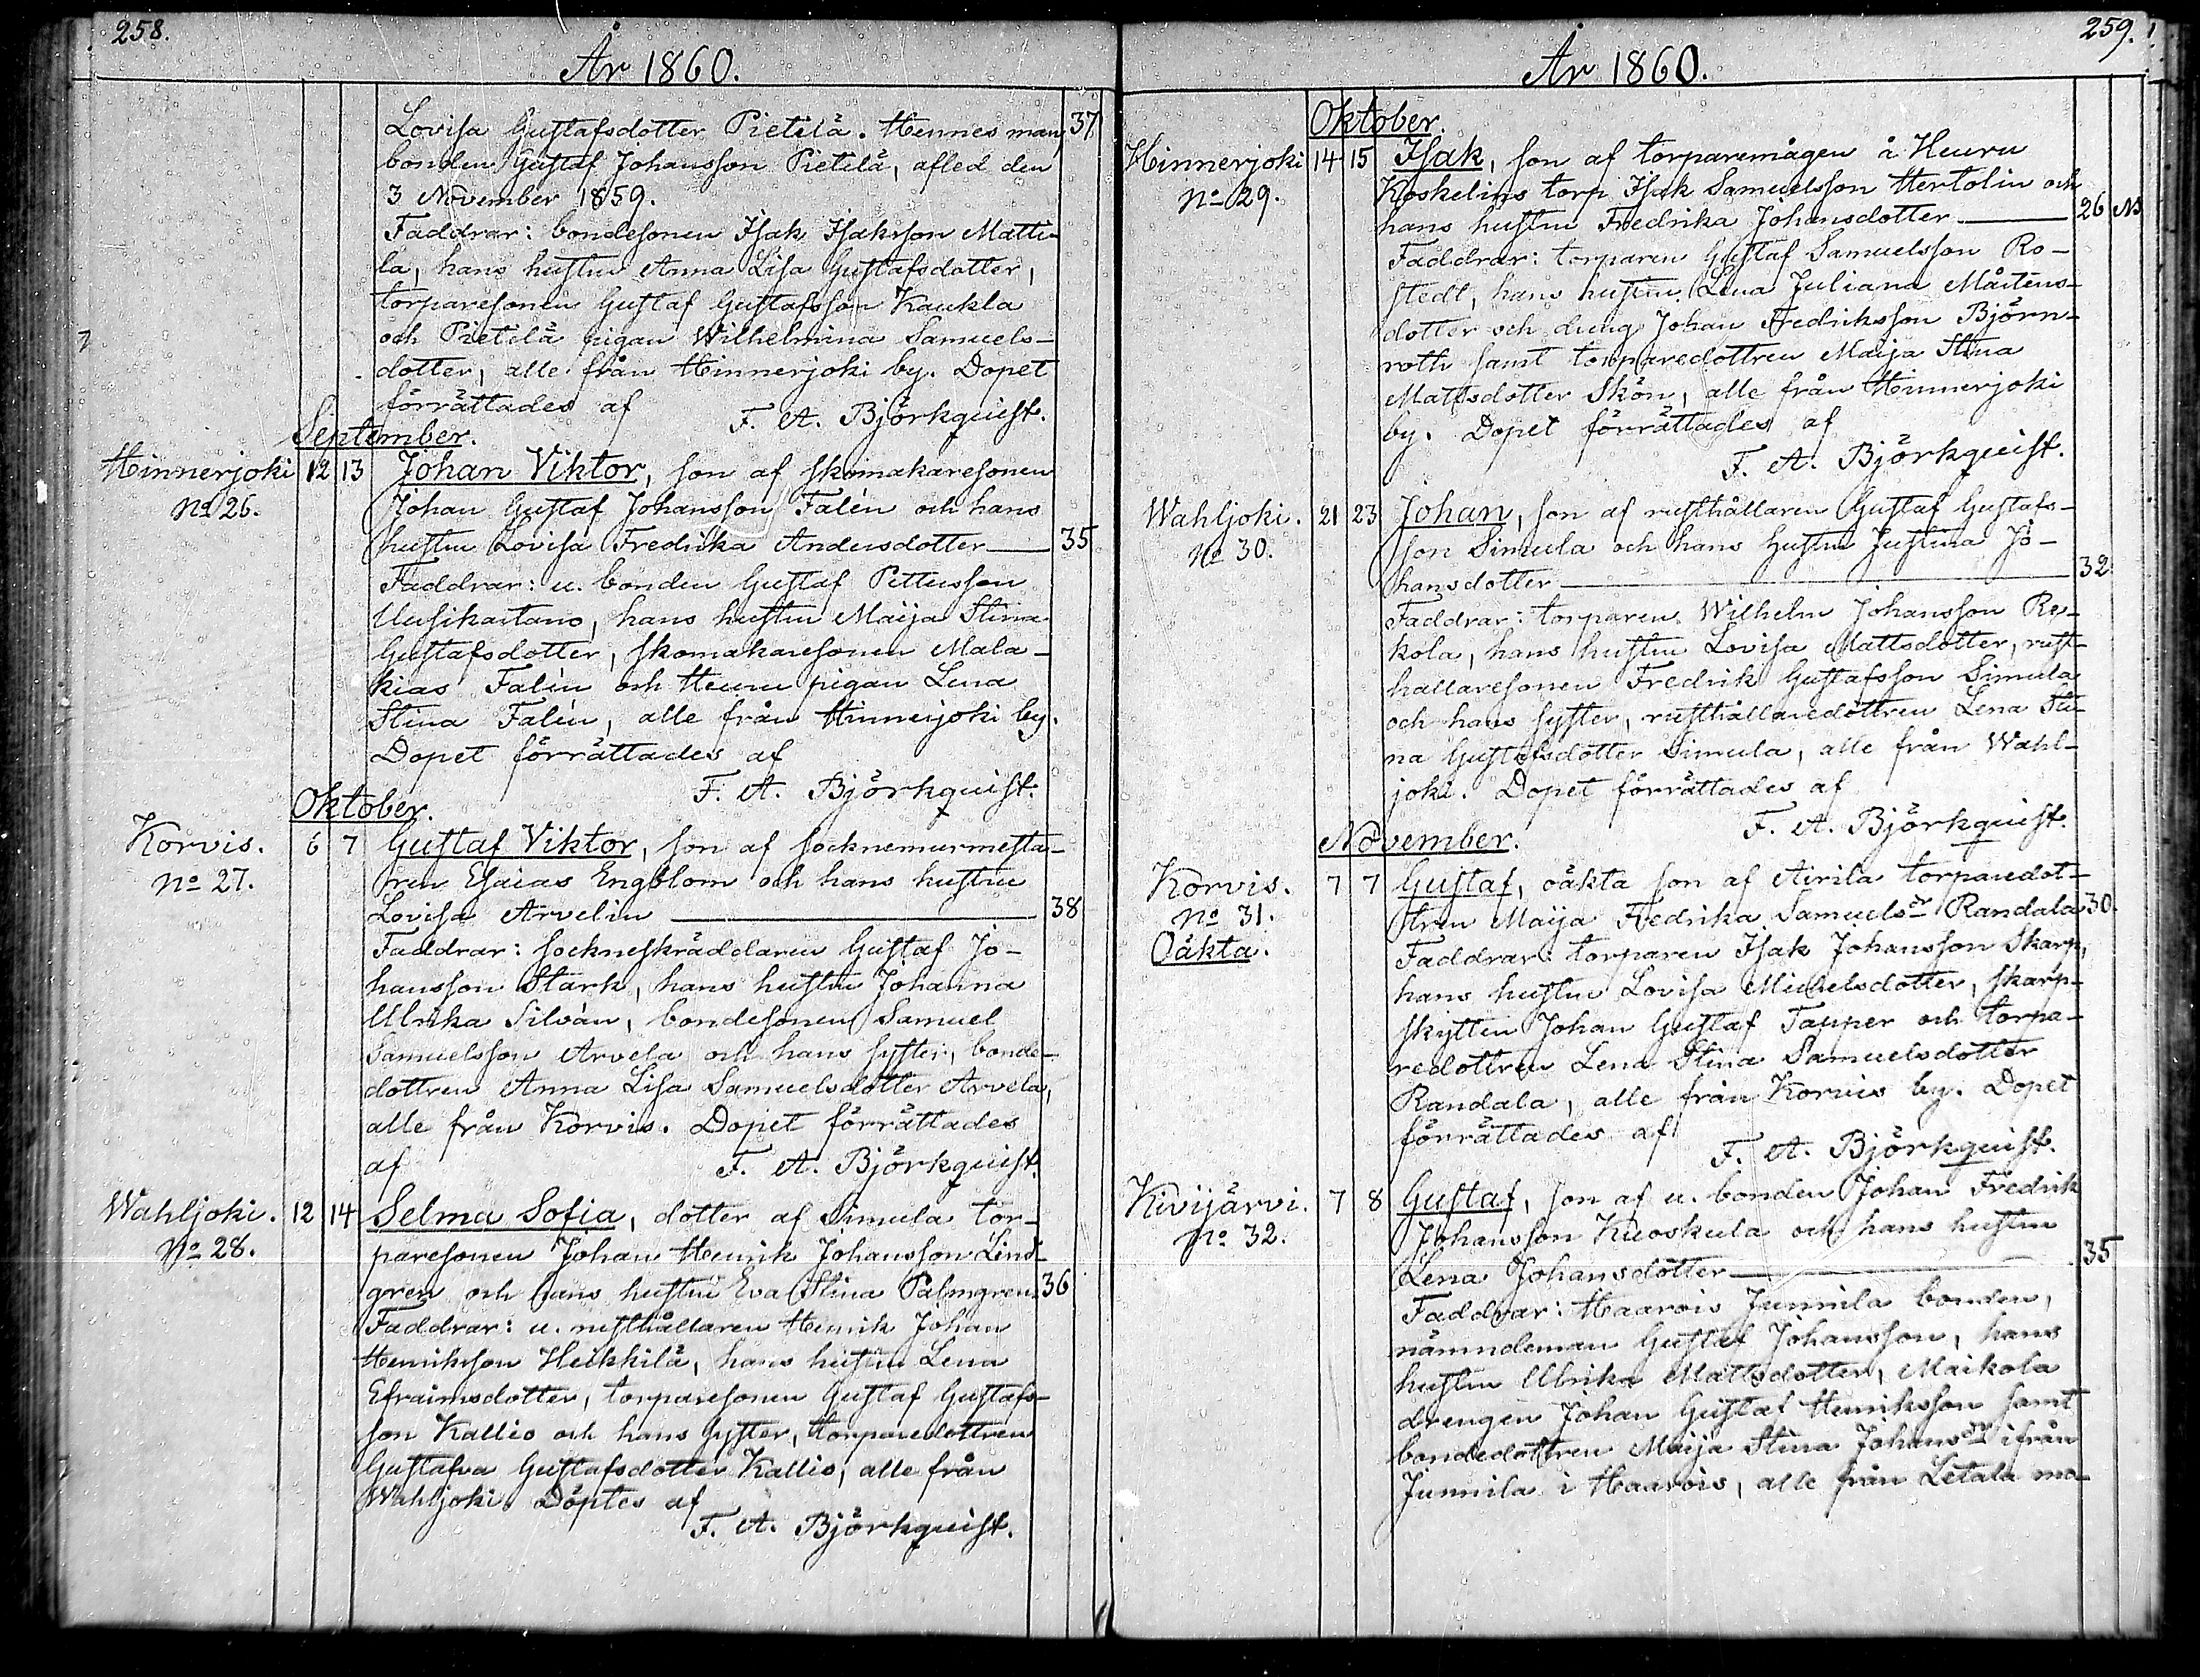 258.
År 1860.
Lovisa Gustafsdotter Pietilä. Hennes man, 37
bonden Gustaf Johansson Pietilä, afled den
3 November 1859.
Faddrar: bondesonen Isak Isaksson Matti-
la, hans hustru Anna Lisa Gustafsdotter,
torparesonen Gustaf Gustafsson Kaukla
och Pietilä pigan Wilhelmina Samuels-
dotter, alle från Hinnerjoki by. Dopet
förrättades af F. A. Björkquist.
September.
Hinnerjoki 12 13 Johan Viktor, son af skomakaresonen
No 26. Johan Gustaf Johansson Falén och hans
hustru Lovisa Fredrika Andersdotter — 35
Faddrar: u. bonden Gustaf Pettersson
Uusikartano, hans hustru Maija Stina
Gustafsdotter, skomakaresonen Mala-
kias Falén och Heuru pigan Lena
Stina Falén, alle från Hinnerjoki by.
Dopet förrättades af
F. A. Björkquist.
Oktober.
Korvis. 6 7 Gustaf Viktor, son af socknemurmesta-
No 27. ren Esaias Engblom och hans hustru
Lovisa Arvelin — 38
Faddrar: sockneskräddaren Gustaf Jo-
hansson Stark, hans hustru Johanna
Ulrika Silván, bondesonen Samuel
Samuelsson Arvela och hans syster, bonde-
dottren Anna Lisa Samuelsdotter Arvela,
alle från Korvis. Dopet förrättades
af F. A. Björkquist.
Wahljoki. 12 14 Selma Sofia, dotter af Simula tor-
No 28. paresonen Johan Henrik Johansson Lind-
gren och hans hustru Eva Stina Palmgren. 36
Faddrar: u. rusthållaren Henrik Johan
Henriksson Heikkilä, hans hustru Lena
Efraimsdotter, torparesonen Gustaf Gustafs-
son Kallio och hans syster, torparedottren
Gustafva Gustafsdotter Kallio, alle från
Wahljoki. Döptes af
F. A. Björkquist.
259.
År 1860.
Oktober.
Hinnerjoki 14 15 Isak, son af torparemågen å Heuru
No 29. Koskelins torp Isak Samuelsson Hertolin och
hans hustru Fredrika Johansdotter — 26
Faddrar: torparen Gustaf Samuelsson Ro-
stedt, hans hustru Lena Juliana Mårtens-
dotter och dreng Johan Fredriksson Björn-
roth samt torparedottren Maija Stina
Mattsdotter Skön, alle från Hinnerjoki
by. Dopet förrättades af
F. A. Björkquist.
Wahljoki. 21 23 Johan, son af rusthållaren Gustaf Gustafs-
No 30. son Simula och hans hustru Justina Jo-
hansdotter — 32
Faddrar: torparen Wilhelm Johansson Re-
kola, hans hustru Lovisa Mattsdotter, rust-
hållaresonen Fredrik Gustafsson Simula
och hans syster, rusthållaredottren Lena Sti-
na Gustafsdotter Simula, alle från Wahl-
joki. Dopet förrättades af
F. A. Björkquist.
November.
Korvis. 7 7 Gustaf, oäkta son af Airila torparedot-
No 31. tren Maija Fredrika Samuelsdr Randala 30.
Oäkta. Faddrar: torparen Isak Johansson Skarp,
hans hustru Lovisa Michelsdotter, skarp-
skytten Johan Gustaf Tapper och torpa-
redottren Lena Stina Samuelsdotter
Randala, alle från Korvis by. Dopet
förrättades af
F. A. Björkquist.
Kivijärvi. 7 8 Gustaf, son af u. bonden Johan Fredrik
No 32. Johansson Kuoskula och hans hustru
Lena Johansdotter — 35
Faddrar: Haarois Junnila bonden,
nämndeman Gustaf Johansson, hans
hustru Ulrika Mattsdotter, Maikola
drengen Johan Gustaf Henriksson samt
bondedottren Maija Stina Johansdr ifrån
Junnila i Haarois, alle från Letala mo-